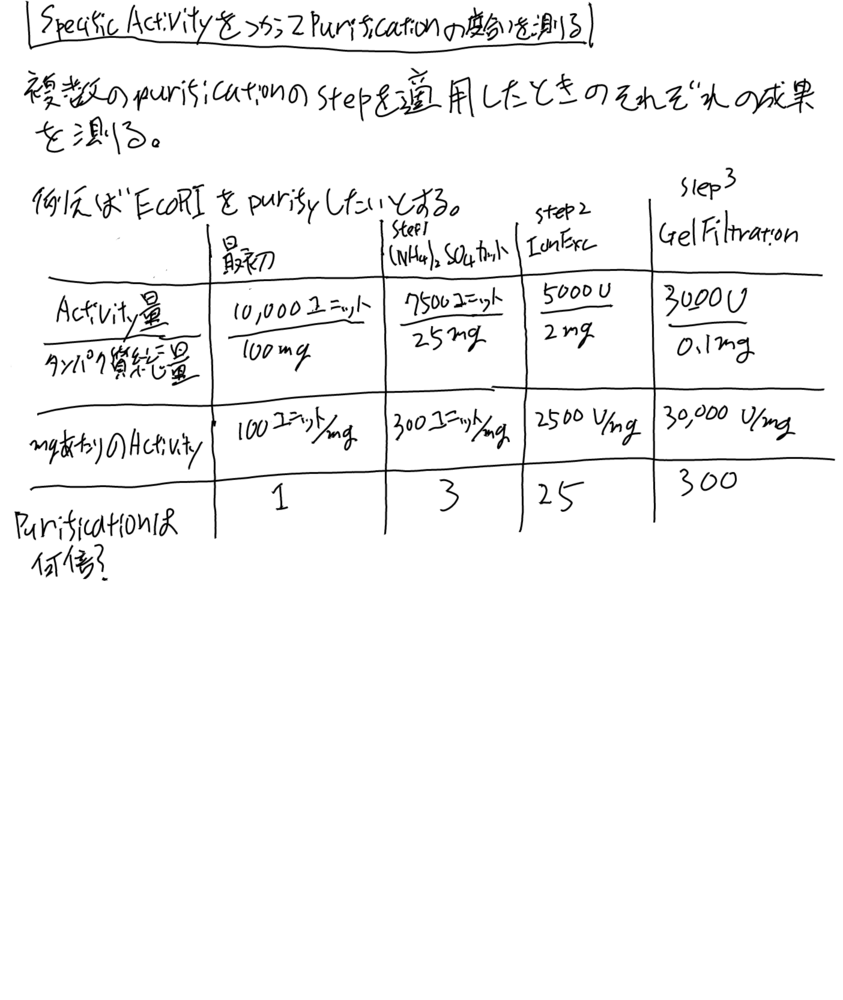 Specific ActivityをつかってPurificationの度合いを測る
複数のpurificationのstepを適用したときのそれぞれの成果
を測る。
例えばEcoRIをpurifyしたいとする。
最初
step1
(NH4)2SO4カット
step2
IonExc
step3
GelFiltration
Activity量
タンパク質総量
10,000ユニット
100mg
7500ユニット
25mg
5000U
2mg
3000U
0.1mg
mgあたりのActivity
100ユニット/mg
300ユニット/mg
2500U/mg
30,000 U/mg
Purificationは
何倍?
1
3
25
300